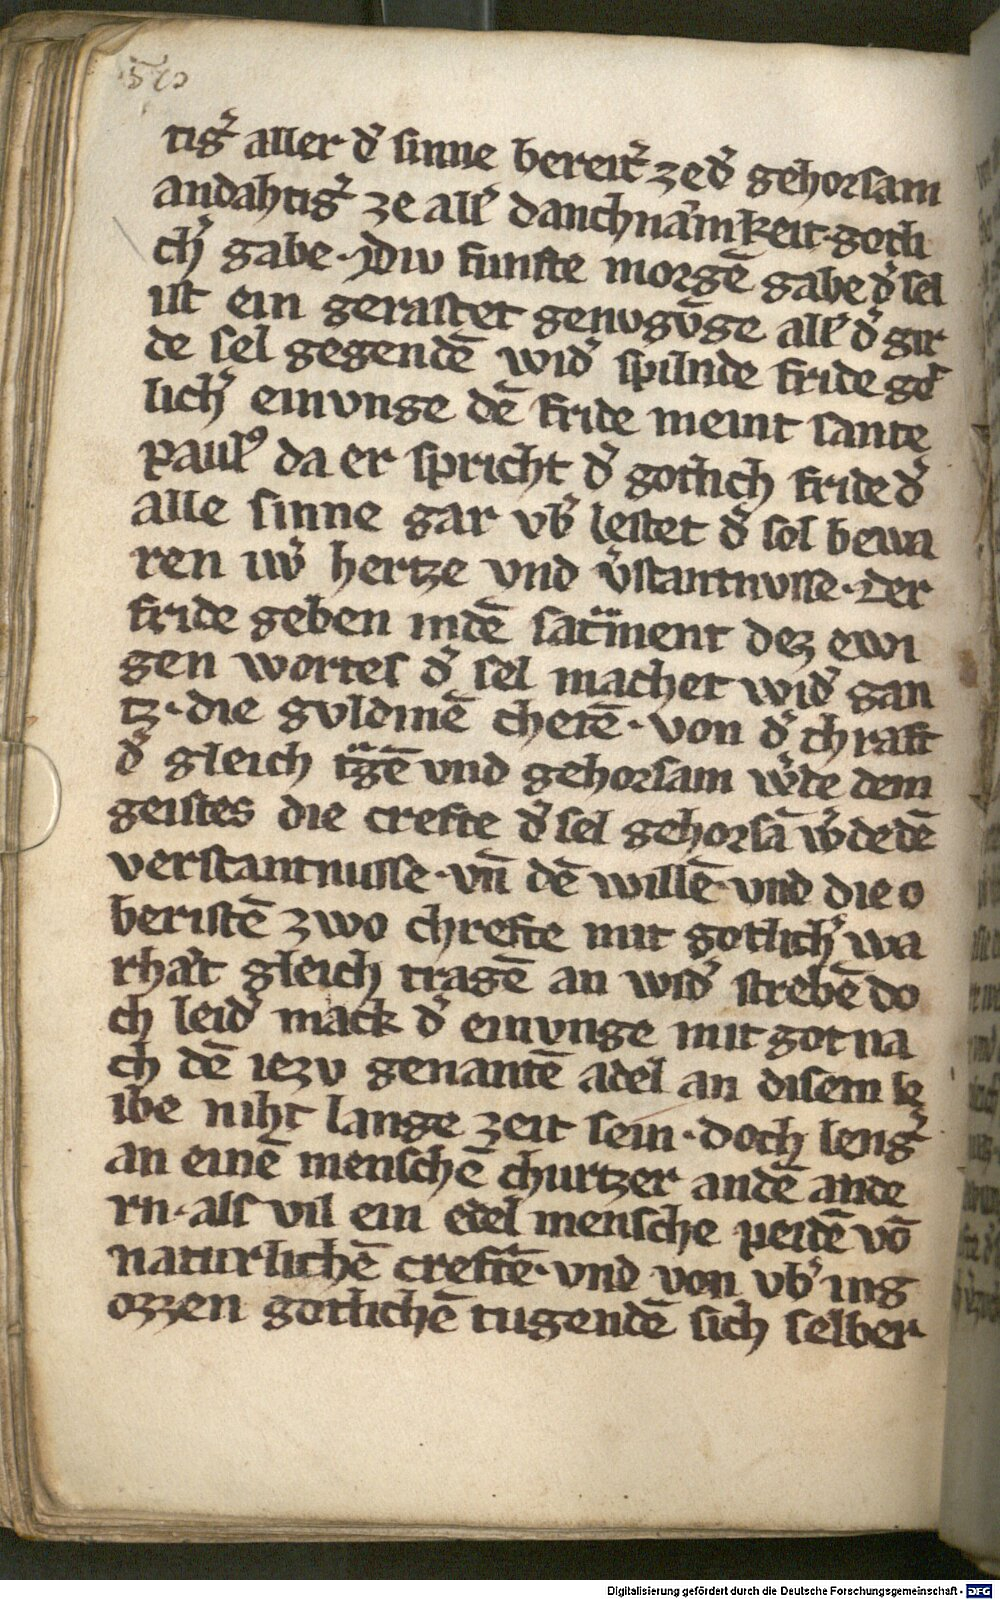 tig͛ aller d͛ sinne bereit͛ ze d͛ gehorsam
andahtig͛ ze all͛ danchnämkeit · gotli
ch͛ gabe · Div funfte morgē gabe d͛ sel
ist ein gerastet genvgvge all͛ d͛ gir
de sel gegendē wid͛ spilnde fride
lich͛ einvnge dē fride meint sante
Paulꝰ da er spricht d͛ gotlich fride d͛
alle sinne gar vb͛ lestet d͛ sol bewa
ren iw͛ hertze vnd v͛stantnvsse · Der
fride geben in dē dez ewi
gen wortes d͛ sel machet wid͛ gan
tz · die gvldinē chetē · von d͛ chraft
d͛ gleich vnd gehorsam w͛de dem
geistes die crefte d͛ sel gehorsā w͛de dē
verstantnusse · vn̄ dē willē · vnd die o
beristē zwo chrefte mit gotlich͛ wa
rhät gleich tragē an wid͛ strebē do
ch leid͛ mack d͛ einvnge mit got na
ch dē iezv genantē adel an disem le
ibe niht lange zeit sein · doch leng͛
an einē menschē churtzer an dē ande
rn · als vil ein edel mensche peidē vō
naturlichē creftē · vnd von vb͛ ing
ozzen gotlichē tugendē sich selber
Digitalisierung gefördert durch die Deutsche Forschungsgemeinschaft - DFG